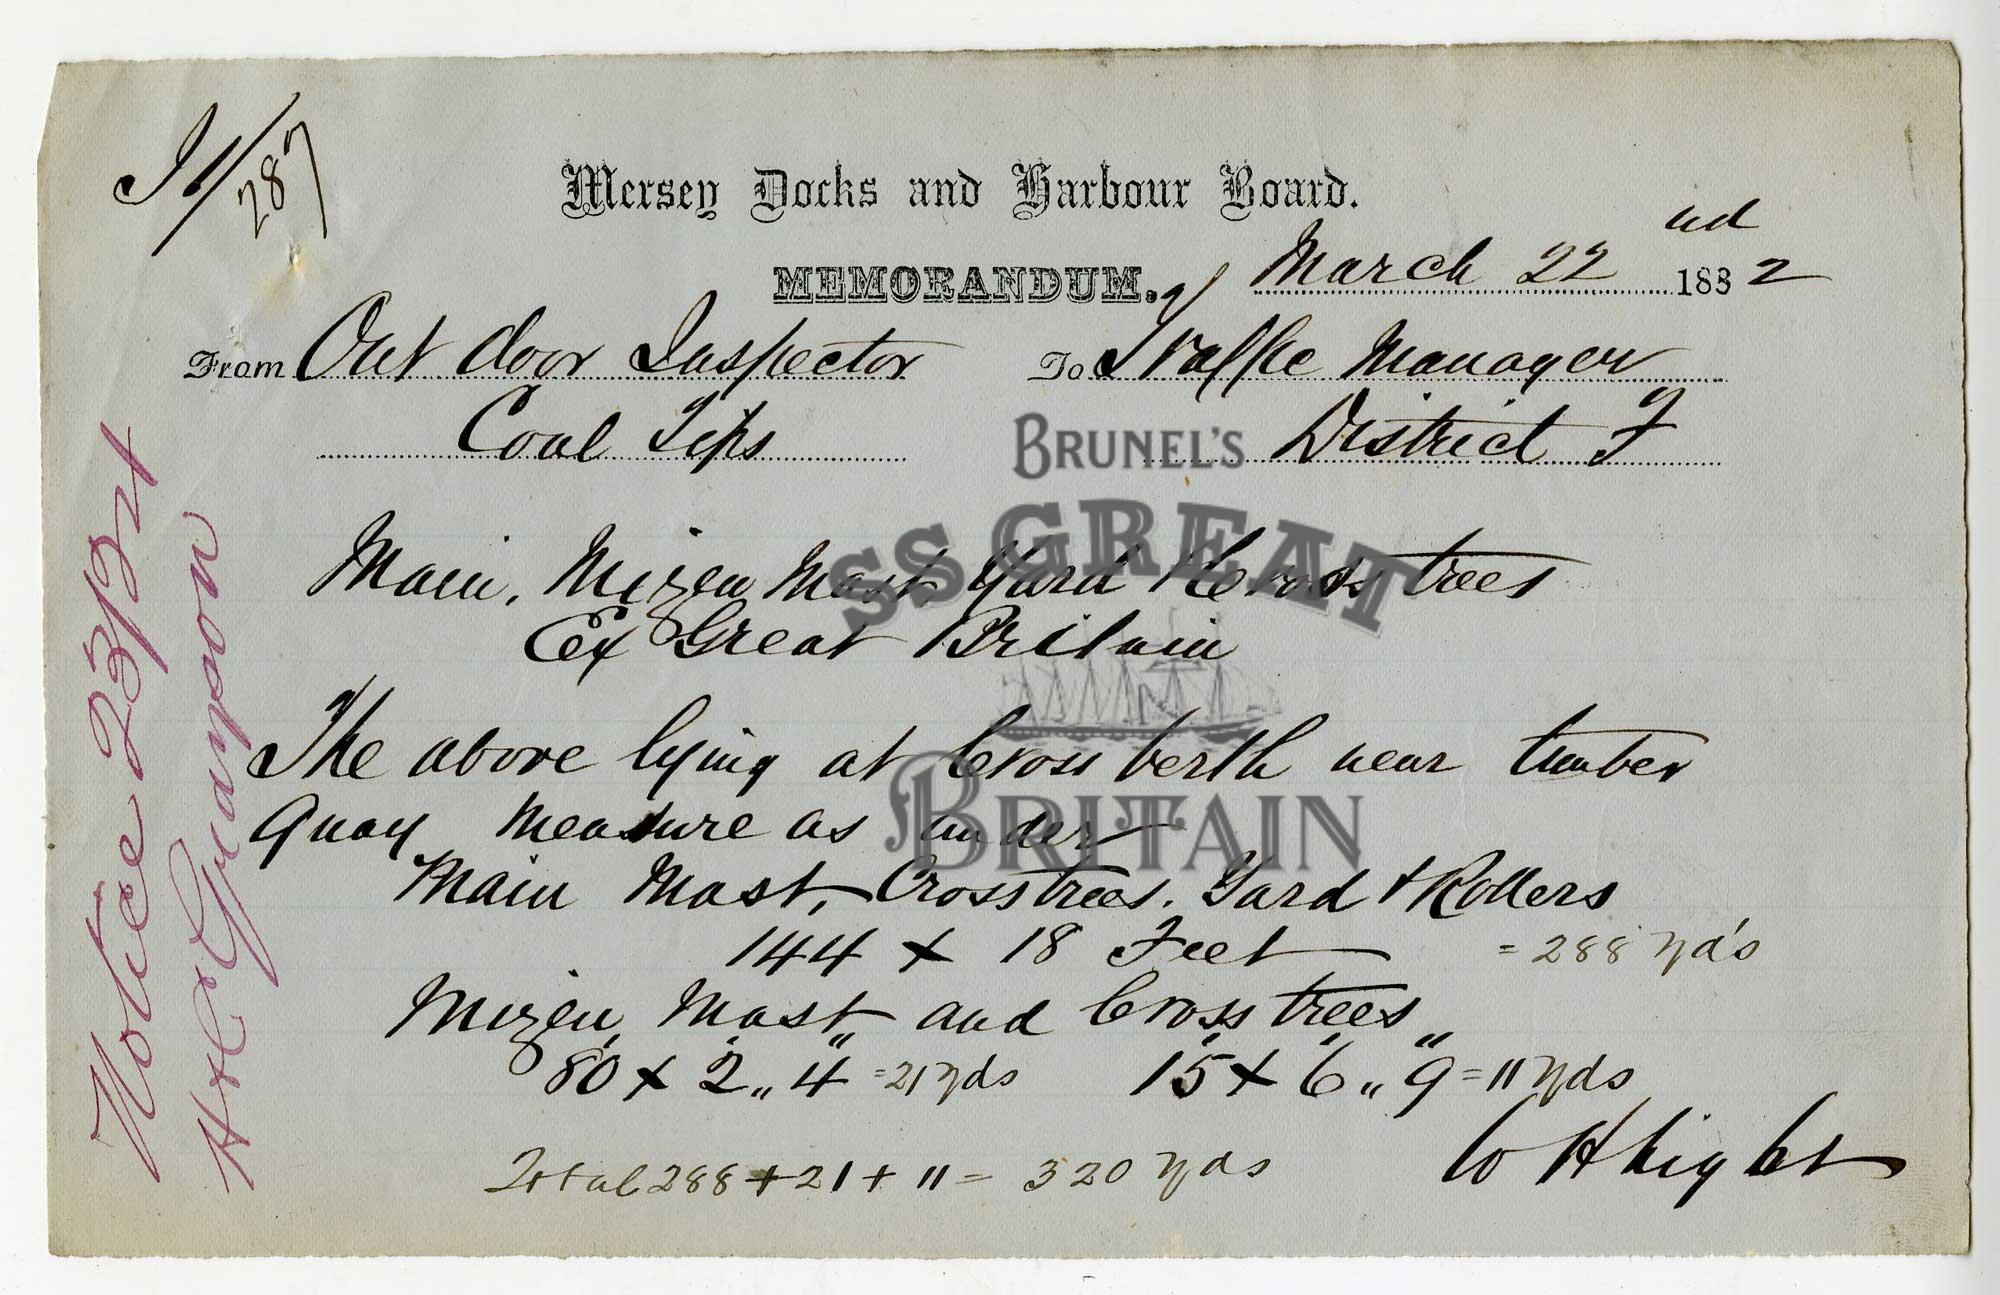 287
Mersey Docks and Harbour Board.
MEMORANDUM.
March 22nd 1882
From Out door Inspector To Traffic Manager
Coal Tips District F
Main, Mizen Mast Yard & Cross trees
Ex Great Britain
The above lying at Cross berth near timber
Quay measure as under
Main Mast, Crosstrees, Yard & Rollers
144 x 18 Feet = 288 yds
Mizen Mast and Cross trees
80 x 2 „ 4 = 21 yds 15 x 6 „ 9 = 11 yds
Total 288 + 21 + 11 = 320 yds
Notice 23/3/
H & C Grayson
BRUNEL'S
SS GREAT
BRITAIN